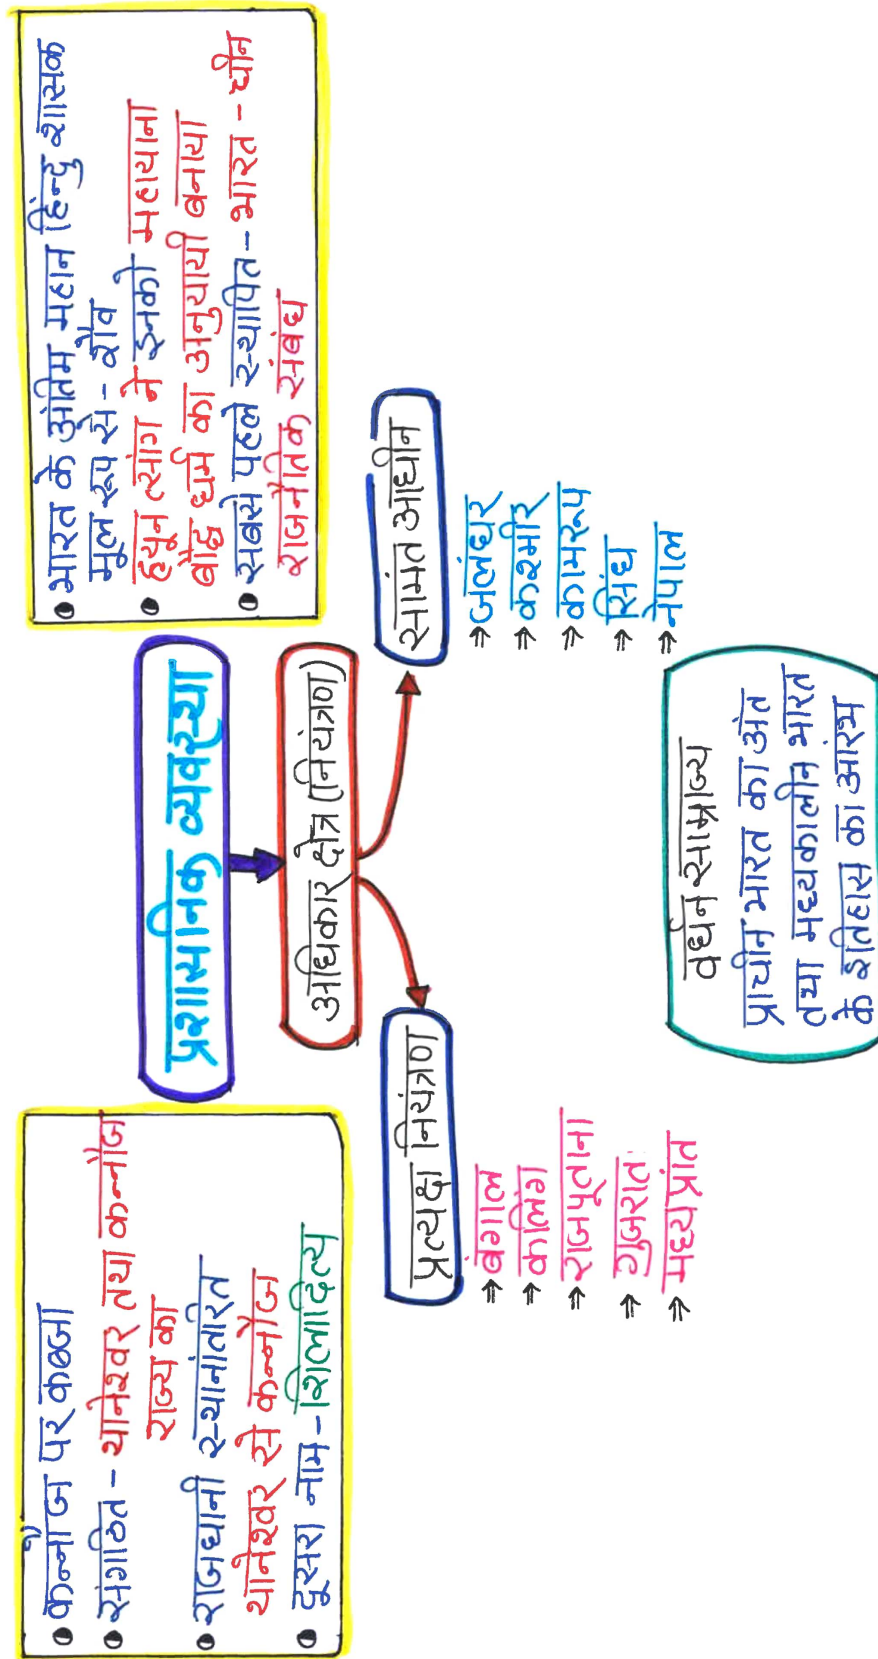 कन्नौज पर कब्जा
संगठित - थानेश्वर तथा कन्नौज
राज्य का
राजधानी स्थानांतरित
थानेश्वर से कन्नौज
दूसरा नाम - शिलादित्य
प्रशासनिक व्यवस्था
अधिकार क्षेत्र (नियंत्रण)
भारत के अंतिम महान हिन्दु शासक
मूल रूप से - शैव
ह्यून त्सांग ने इनको महायाना
बौद्ध धर्म का अनुयायी बनाया
सबसे पहले स्थापित - भारत - चीन
राजनैतिक संबंध
प्रत्यक्ष नियंत्रण
⇒ बंगाल
⇒ कलिंग
⇒ राजपूताना
⇒ गुजरात
⇒ मध्यप्रांत
सामंत आधीन
⇒ जलंधर
⇒ कश्मीर
⇒ कामरूप
⇒ सिंध
⇒ नेपाल
वर्धन साम्राज्य
प्राचीन भारत का अंत
तथा मध्यकालीन भारत
के इतिहास का आरंभ